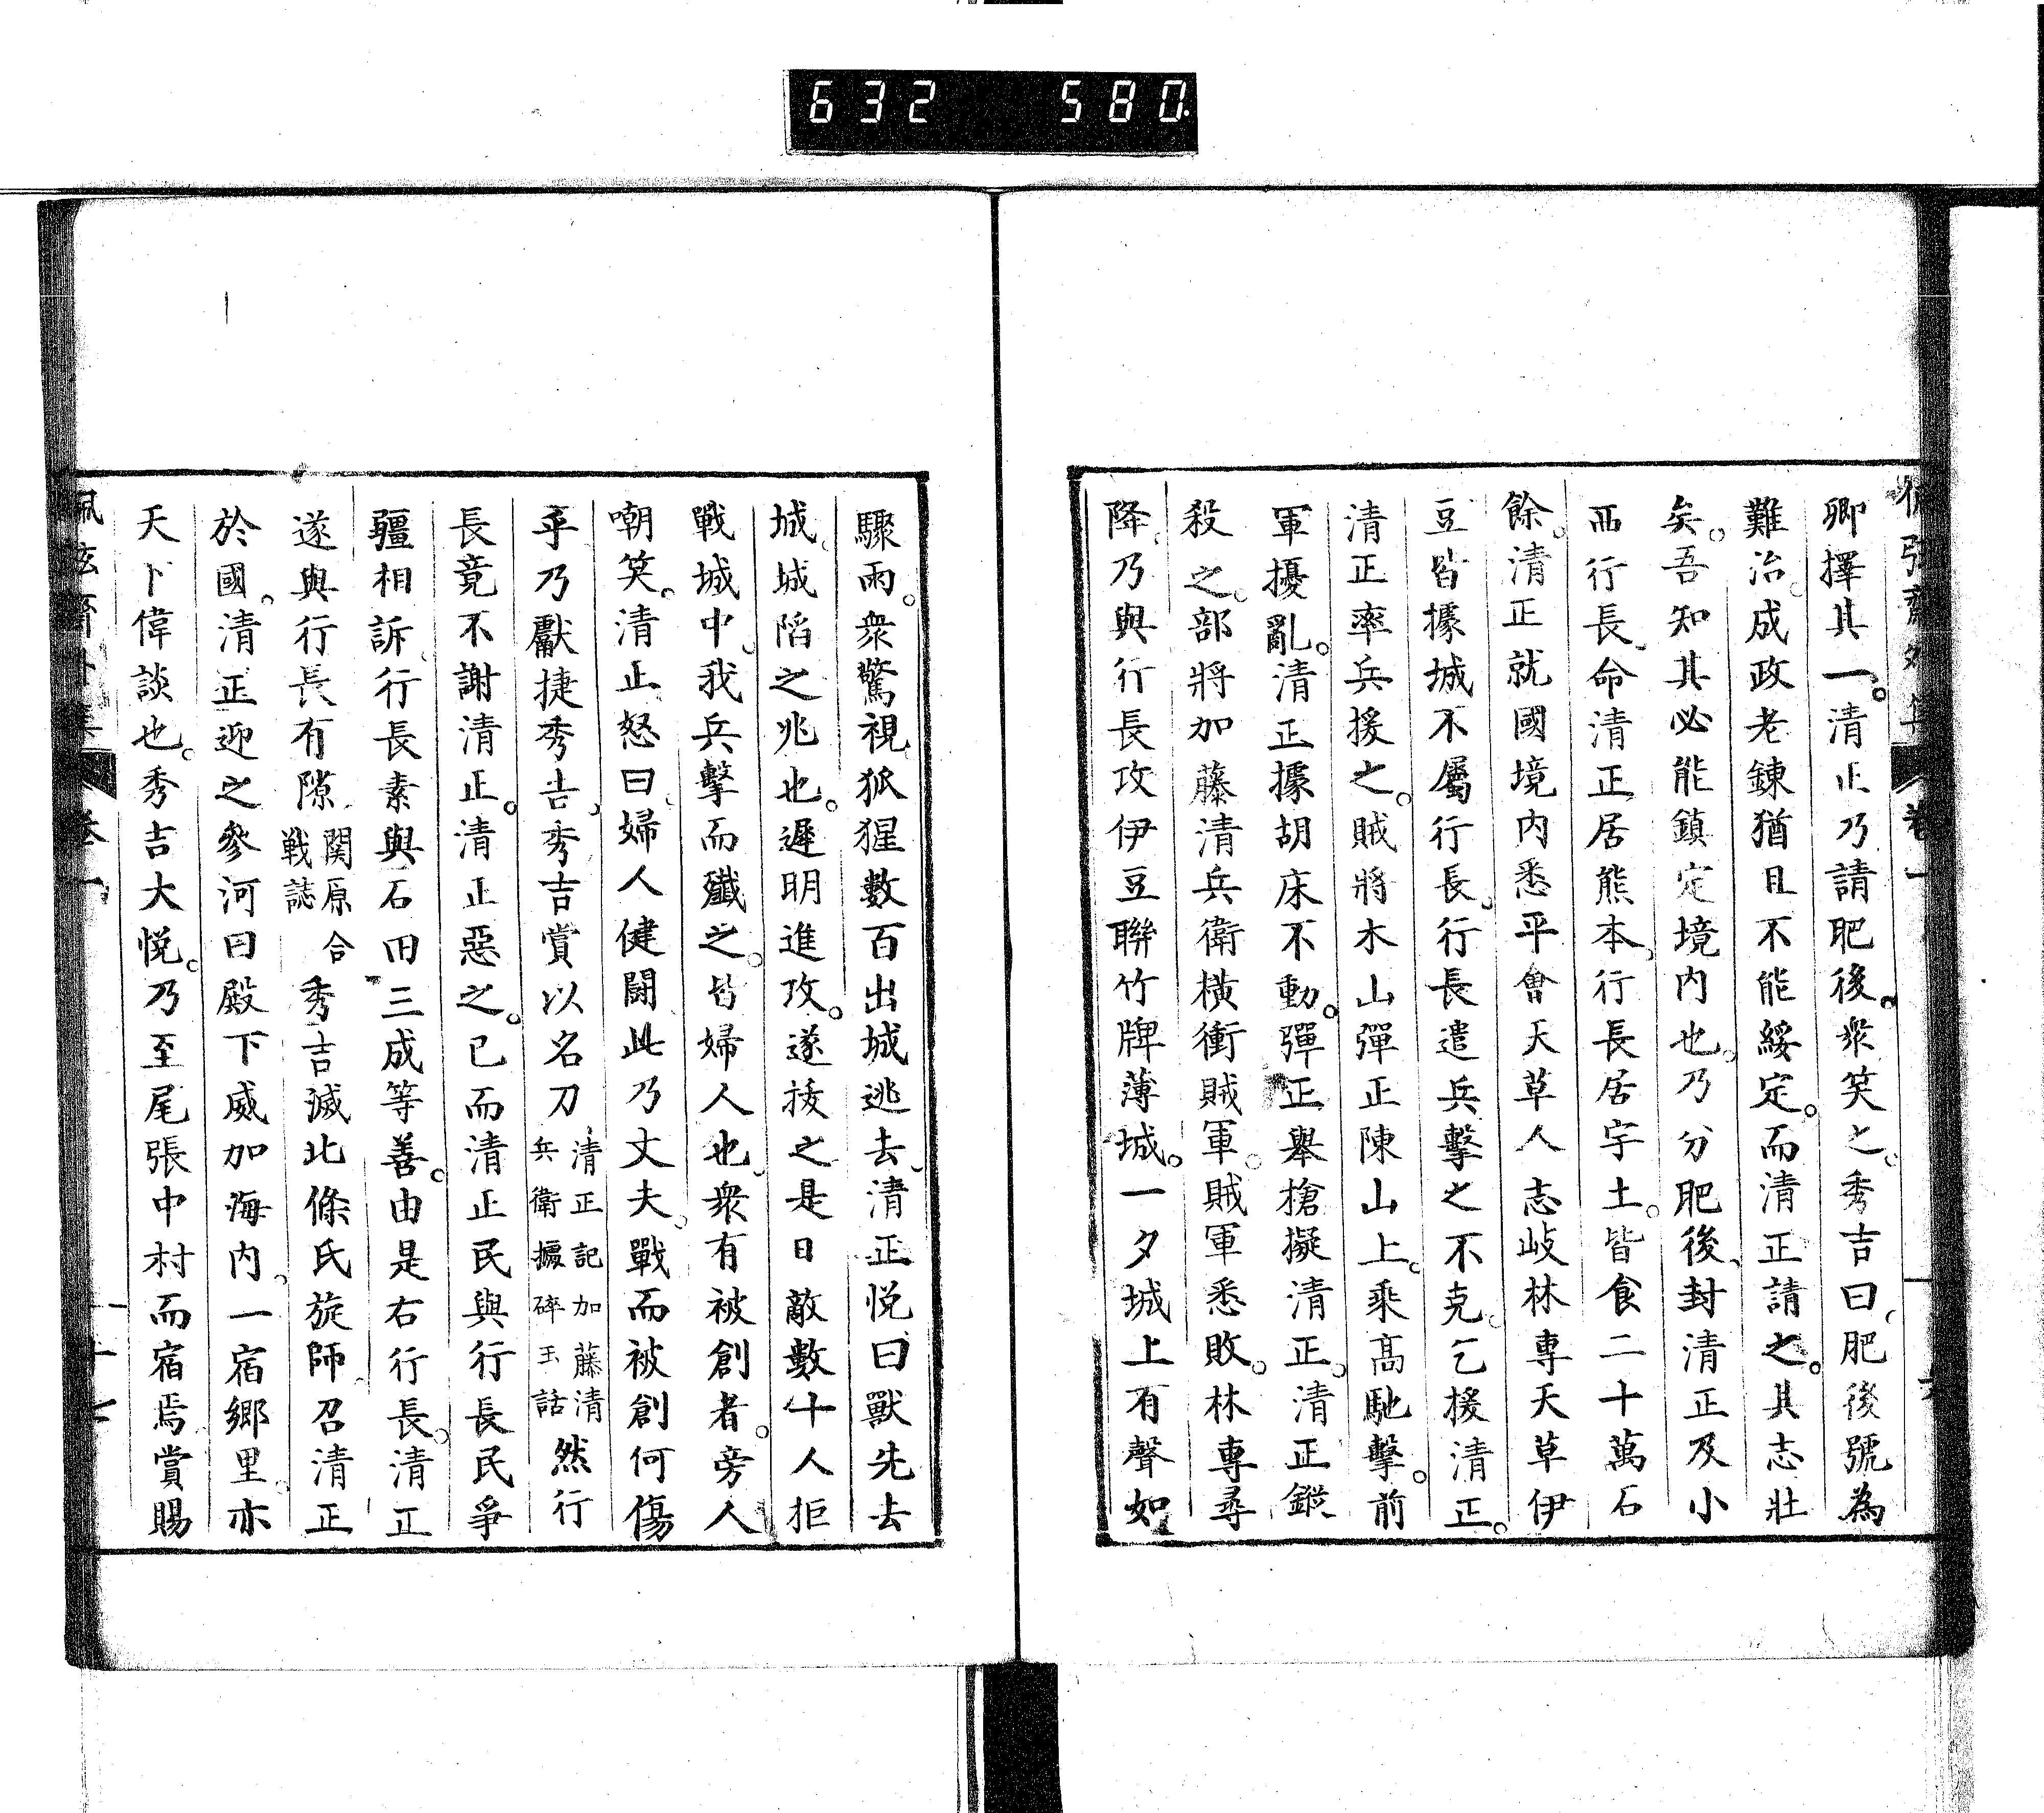 632 580
卿擇其一。清正乃請肥後。衆笑之。秀吉曰、肥後號為
難治。成政老錬猶且不能綏定。而清正請之。其志壯
矣。吾知其必能鎮定境内也。乃分肥後、封清正及小
西行長、命清正居熊本、行長居宇土。皆食二十萬石
餘。清正就國境内悉平會天草人志岐林專天草伊
豆皆據城不屬行長。行長遣兵擊之不克。乞援清正。
清正率兵援之。賊將木山彈正陳山上。乘高馳擊。前
軍擾亂。清正據胡床不動。彈正舉槍擬清正。清正鏦
殺之。部將加藤清兵衛橫衝賊軍。賊軍悉敗。林專尋
降。乃與行長攻伊豆聯竹牌薄城。一夕城上有聲如
驟雨。衆驚視、狐狸數百出城逃去、清正悦曰獸先去
城、城陷之兆也。遲明進攻。遂拔之是日敵數十人拒
戰城中、我兵擊而殲之。皆婦人也、衆有被創者。旁人
嘲笑。清正怒曰、婦人健鬪此乃丈夫。戰而被創何傷
乎乃獻捷秀吉、秀吉賞以名刀清正記加藤清兵衛攟碎玉話然行
長竟不謝清正。清正惡之。已而清正民與行長民爭
疆相訴、行長素與石田三成等善。由是右行長。清正
遂與行長有隙、関原合戦誌秀吉滅北條氏旋師。召清正
於國。清正迎之參河曰殿下威加海内。一宿郷里。亦
天下偉談也。秀吉大悦。乃至尾張中村而宿焉、賞賜
卷一
十七